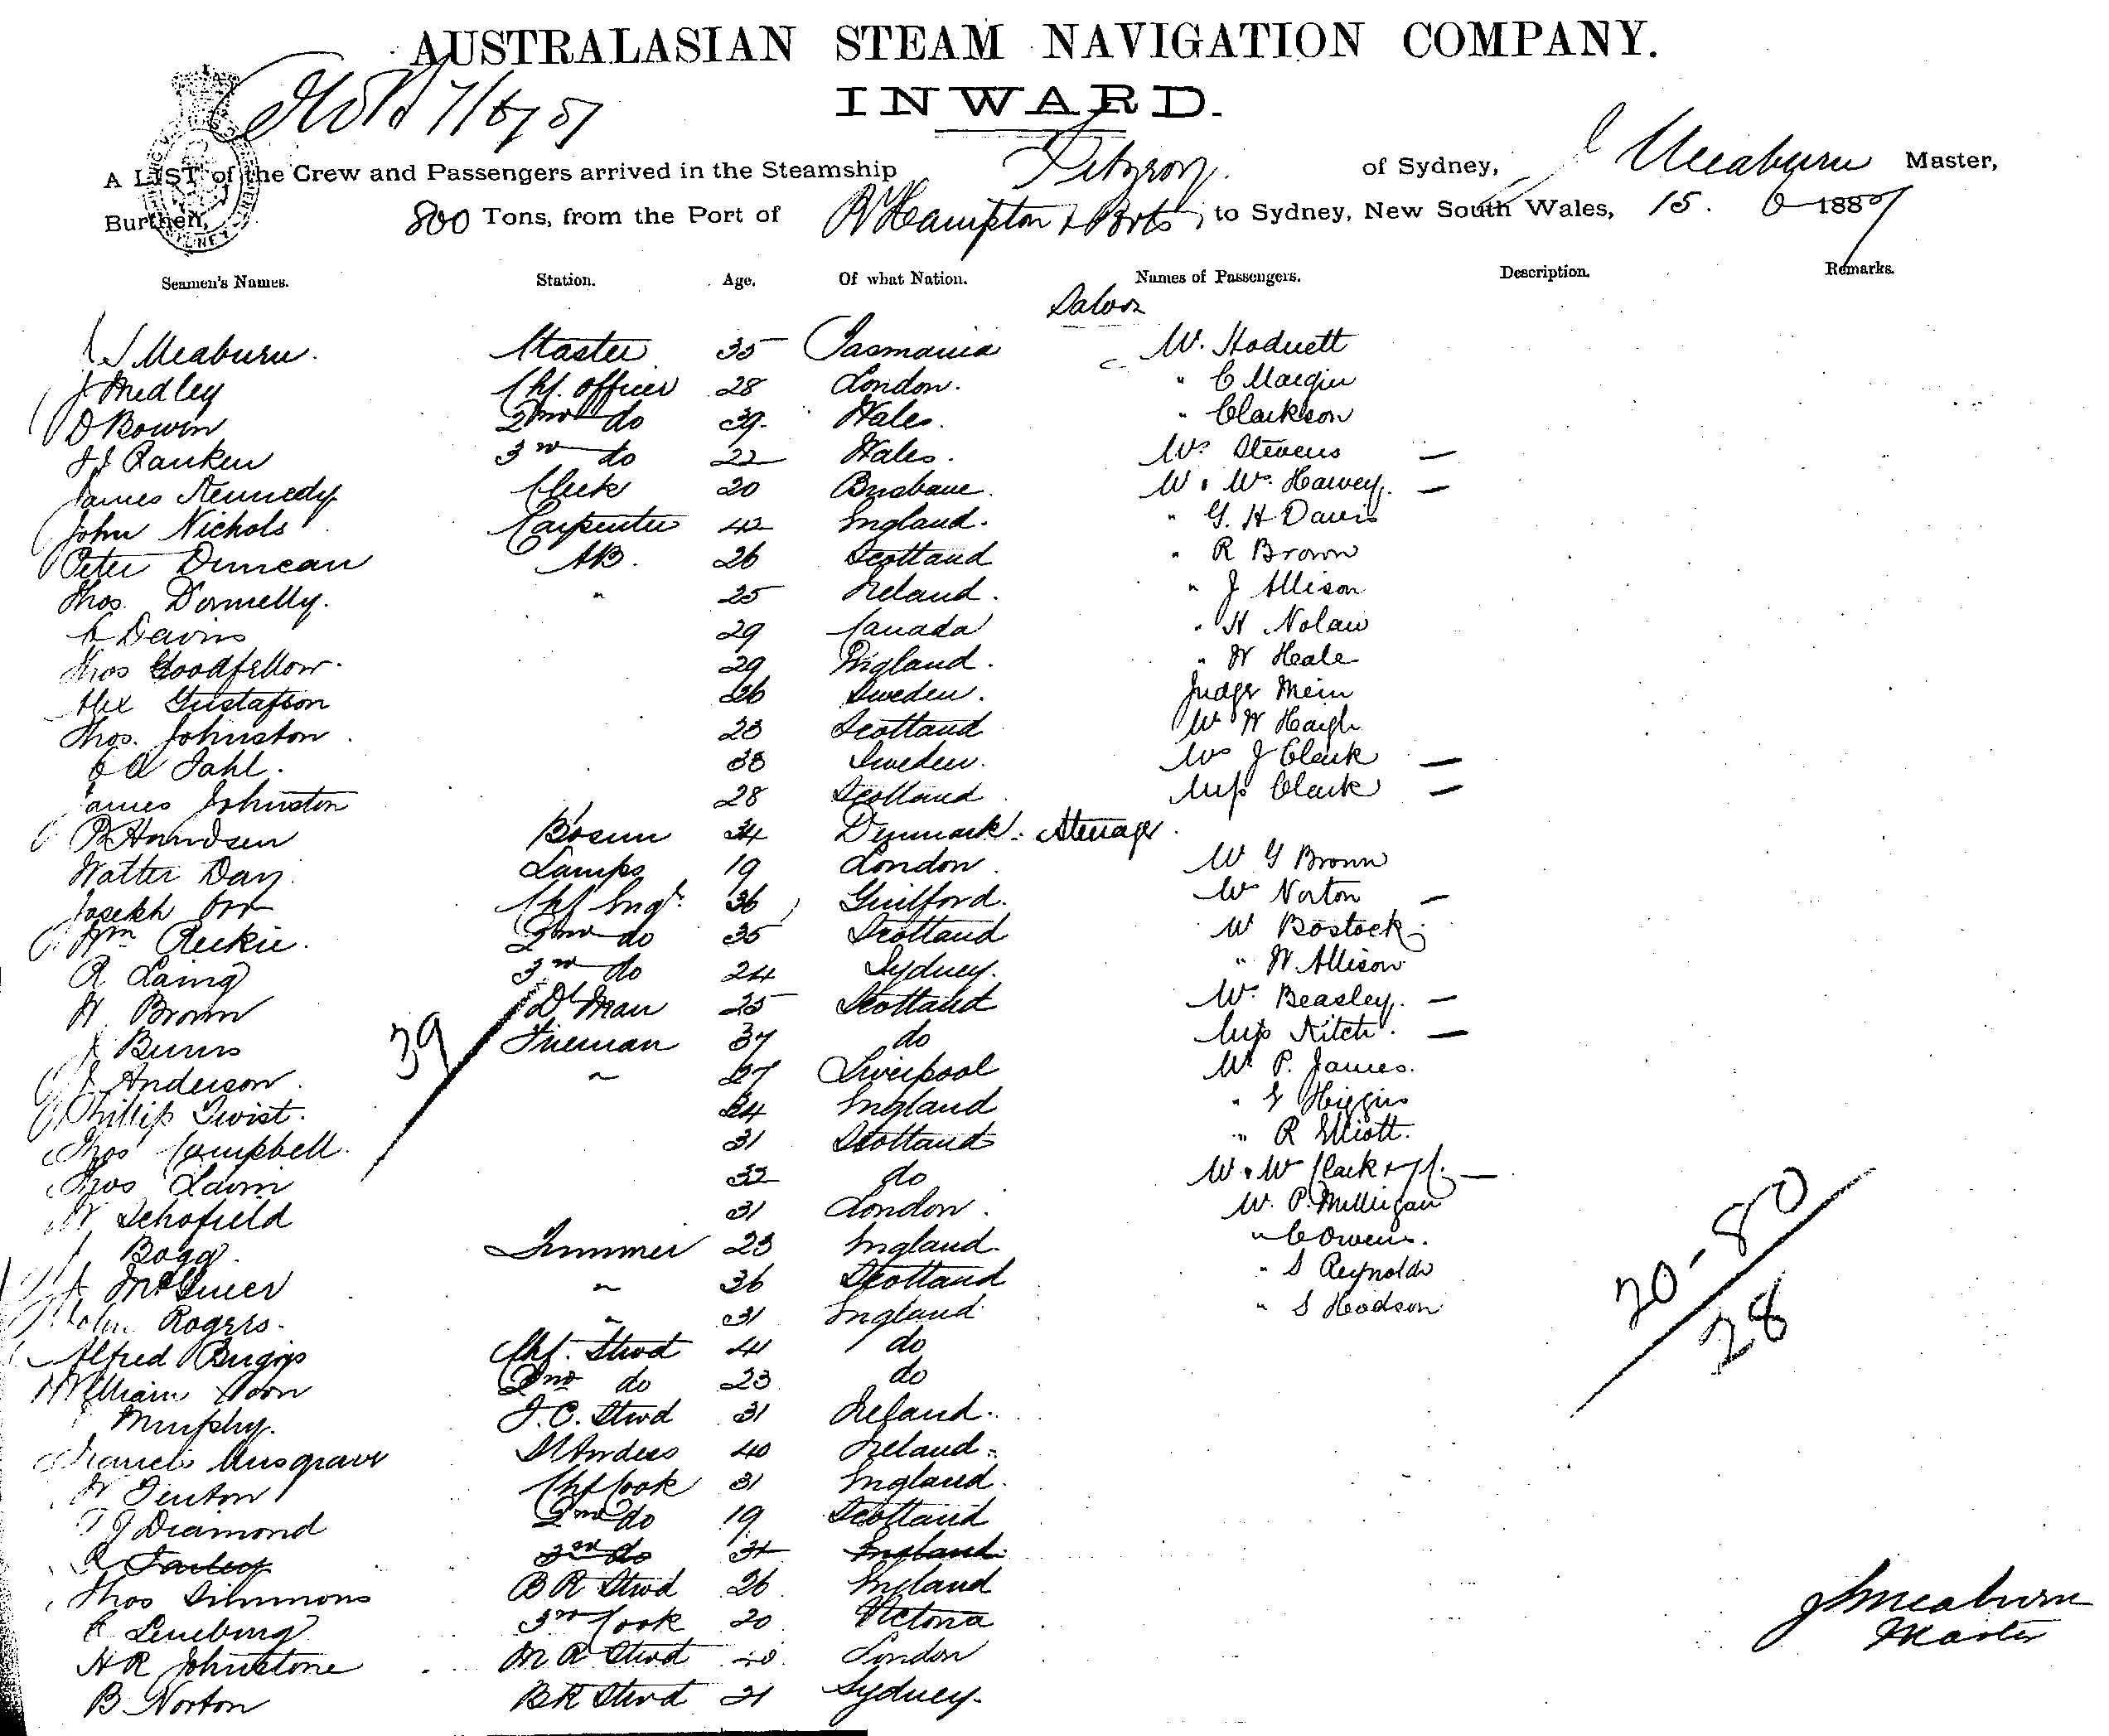 AUSTRALASIAN STEAM NAVIGATION COMPANY.
INWARD.
A LIST of the Crew and Passengers arrived in the Steamship Fitzroy. of Sydney, J Meaburn Master,
Burthen, 800 Tons, from the Port of R Hampton & Ports, to Sydney, New South Wales, 15. 6 1887
Seamen's Names. Station. Age. Of what Nation. Names of Passengers. Description. Remarks.
Saloon
J Meaburn. Master 35 Tasmania W. Hodnett
J Medley Chf. officer 28 London. " C Macgin
D Bowen 2nd do 39. Wales. " Clarkson
J J Ranken 3rd do 22 Wales. Mrs Stevens —
James Kennedy Clerk 20 Brisbane. Mr & Mrs Harvey. —
John Nichols Carpenter 42 England. " G. H Davis
Peter Duncan AB. 26 Scotland " R Brown
Thos. Donnelly. " 25 Ireland. " J Allison
Davis 29 Canada " H Nolan
Thos Goodfellow. 29 England. " W Heale
Alex Gustafson 26 Sweden. Judge Mein
Thos. Johnston 23 Scotland Mr W Haigh
C A Dahl. 38 Sweden. Mrs J Clark —
James Johnston 28 Scotland Miss Clark —
Bosun 34 Denmark. Steerage
Walter Day Lamps 19 London Mr G Brown
Joseph Orr Chf Engr. 36 Guilford. Mrs Norton —
Wm Reekie. 2nd do 35 Scotland Mr Bostock
R Laing 3rd do 24 Sydney. " W Allison
W Brown Dk Man 25 Scotland Mrs Beasley. —
J Burns Fireman 37 do Miss Kitch. —
39
J Anderson. " 27 Liverpool Mr P. James.
Phillip Twist. 24 England " Higgins
Thos Campbell. 31 Scotland " R Elliott.
Thos Lavin 32 do Mr & Mrs Clark & —
W Schofield 31 London. Mr. P. Milligan
Bogg. Trimmer 23 England. " C Owens.
McGuer " 36 Scotland " S Reynolds
John Rogers. " 31 England " S Hodson
20-80
28
Alfred Briggs Chf. Stwd 41 do
William 2nd do 23 do
Murphy. F.C. Stwd 31 Ireland.
Francis Musgrave 40 Ireland
W Fenton Chf Cook 31 England.
J Diamond 2nd do 19 Scotland
R Farley 3rd do 31 England.
Thos Simmons B R Stwd 26 England
C Luneburg 3rd Cook 20 Victoria
H R Johnstone M R Stwd London
B. Norton B R Stwd 21 Sydney.
J Meaburn
Master